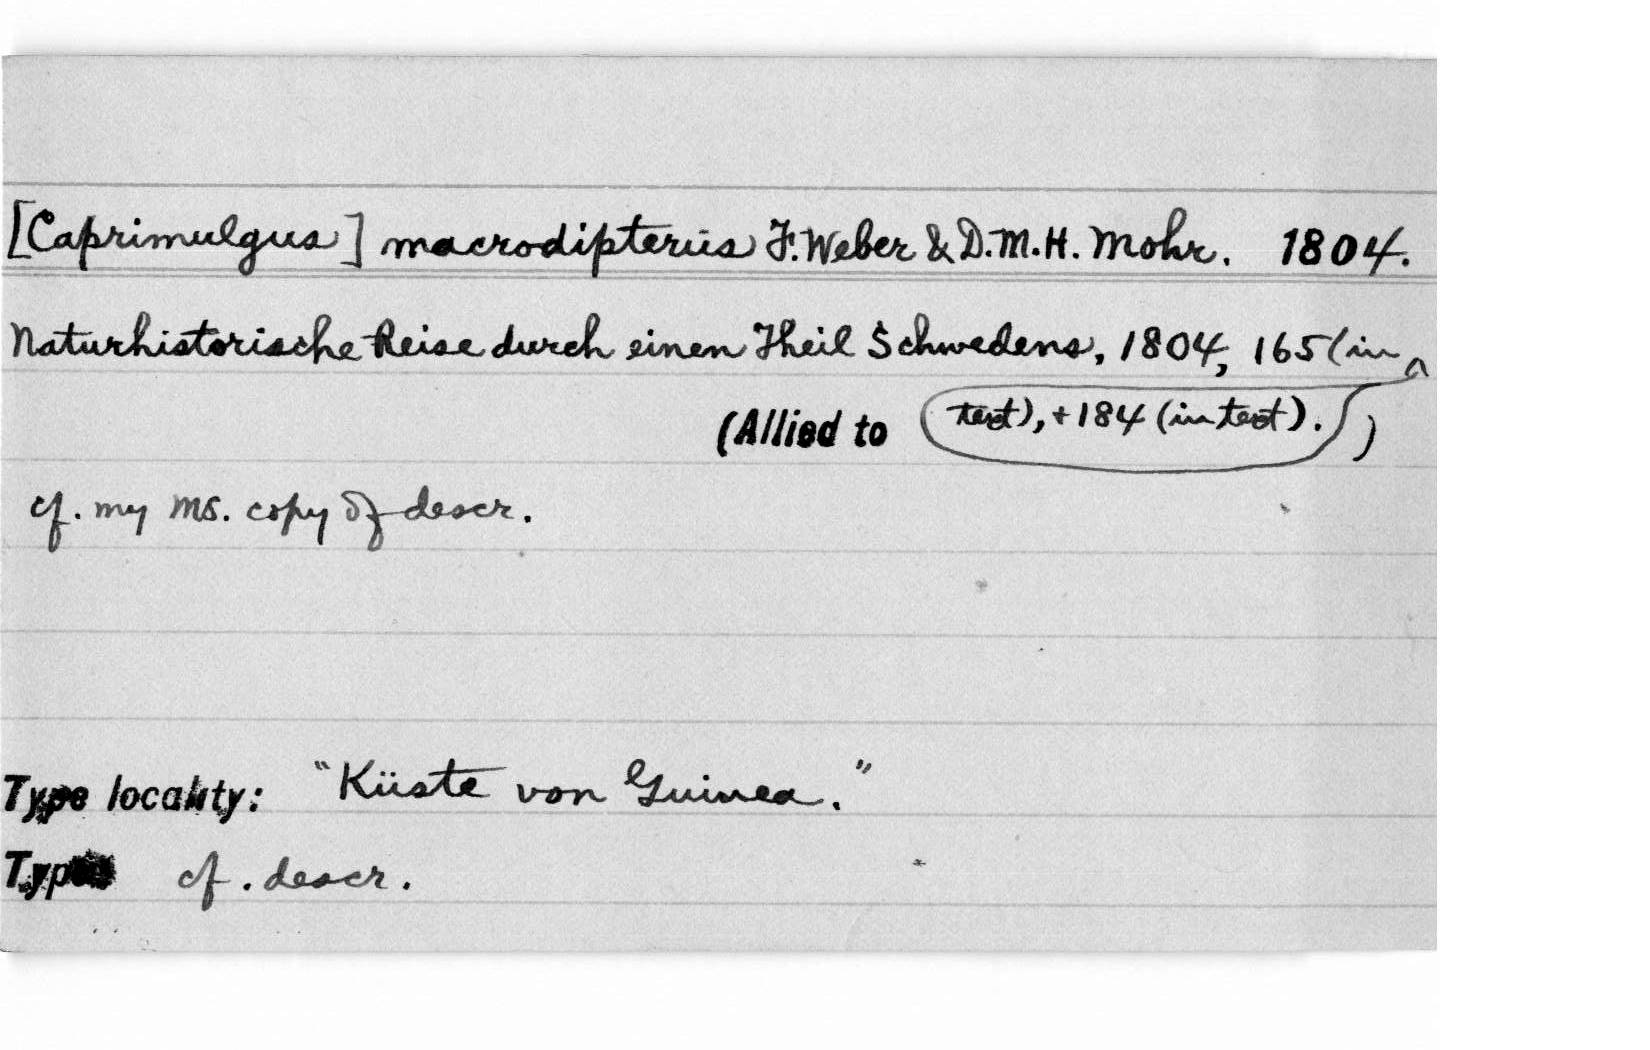 [Caprimulgus] macrodipterus F. Weber & D.M.H. Mohr. 1804.
Naturhistorische Reise durch einen Theil Schwedens, 1804, 165 (in
(Allied to text), + 184 (in text). )
cf. my MS. copy of descr.
Type locality: "Küste von Guinea."
Type cf. descr.